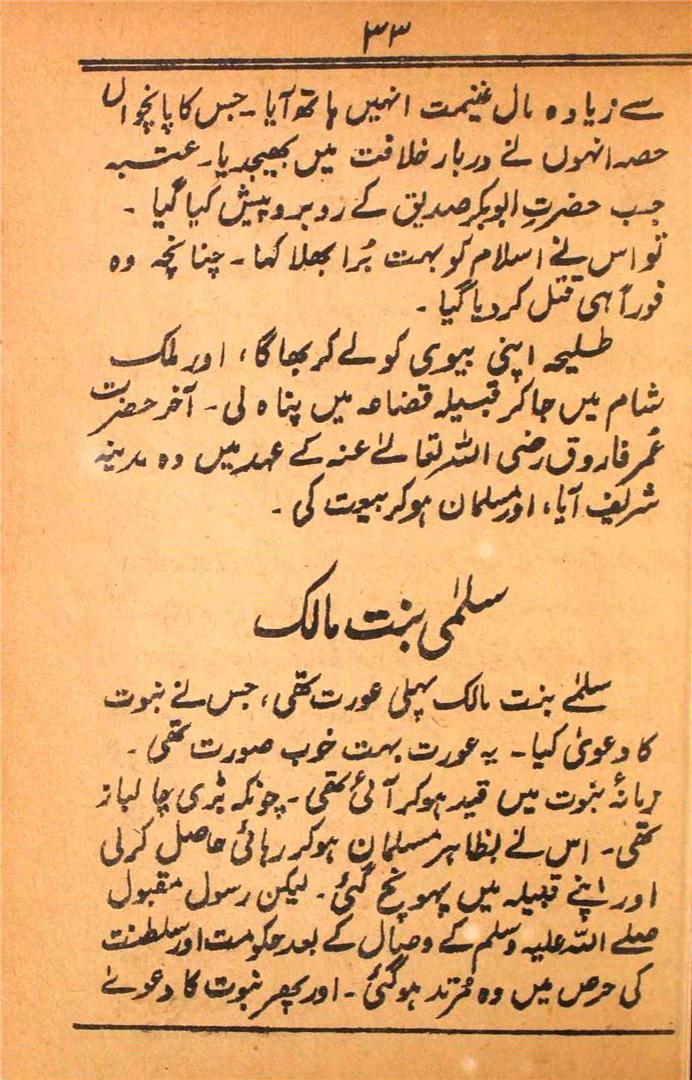 ۳۳
سے زیادہ مال غنیمت انہیں ہاتھ آیا۔ جس کا پانچواں
حصہ انہوں نے دربار خلافت میں بھیجدیا۔ عتبہ
جب حضرتِ ابوبکر صدیق کے روبرو پیش کیا گیا۔
تو اس نے اسلام کو بہت بُرا بھلا کہا۔ چنانچہ وہ
فوراً ہی قتل کر دیا گیا۔
طلیحہ اپنی بیوی کو لے کر بھاگا، اور ملک
شام میں جا کر قبیلہ قضاعہ میں پناہ لی۔ آخر حضرت
عُمر فاروق رضی اللہ تعالےٰ عنہ کے عہد میں وہ مدینہ
شریف آیا، اور مسلمان ہو کر بیعت کی۔
سلمٰی بنت مالک
سلمےٰ بنت مالک پہلی عورت تھی، جس نے نبوت
کا دعویٰ کیا۔ یہ عورت بہت خوب صورت تھی۔
زمانۂ نبوت میں قید ہو کر آئی تھی۔ چونکہ بڑی چالباز
تھی۔ اس نے بظاہر مسلمان ہو کر رہائی حاصل کر لی
اور اپنے قبیلہ میں پہونچ گئی۔ لیکن رسول مقبول
صلے اللہ علیہ وسلم کے وصال کے بعد حکومت اور سلطنت
کی حرص میں وہ مُرتد ہو گئی۔ اور پھر نبوت کا دعوےٰ